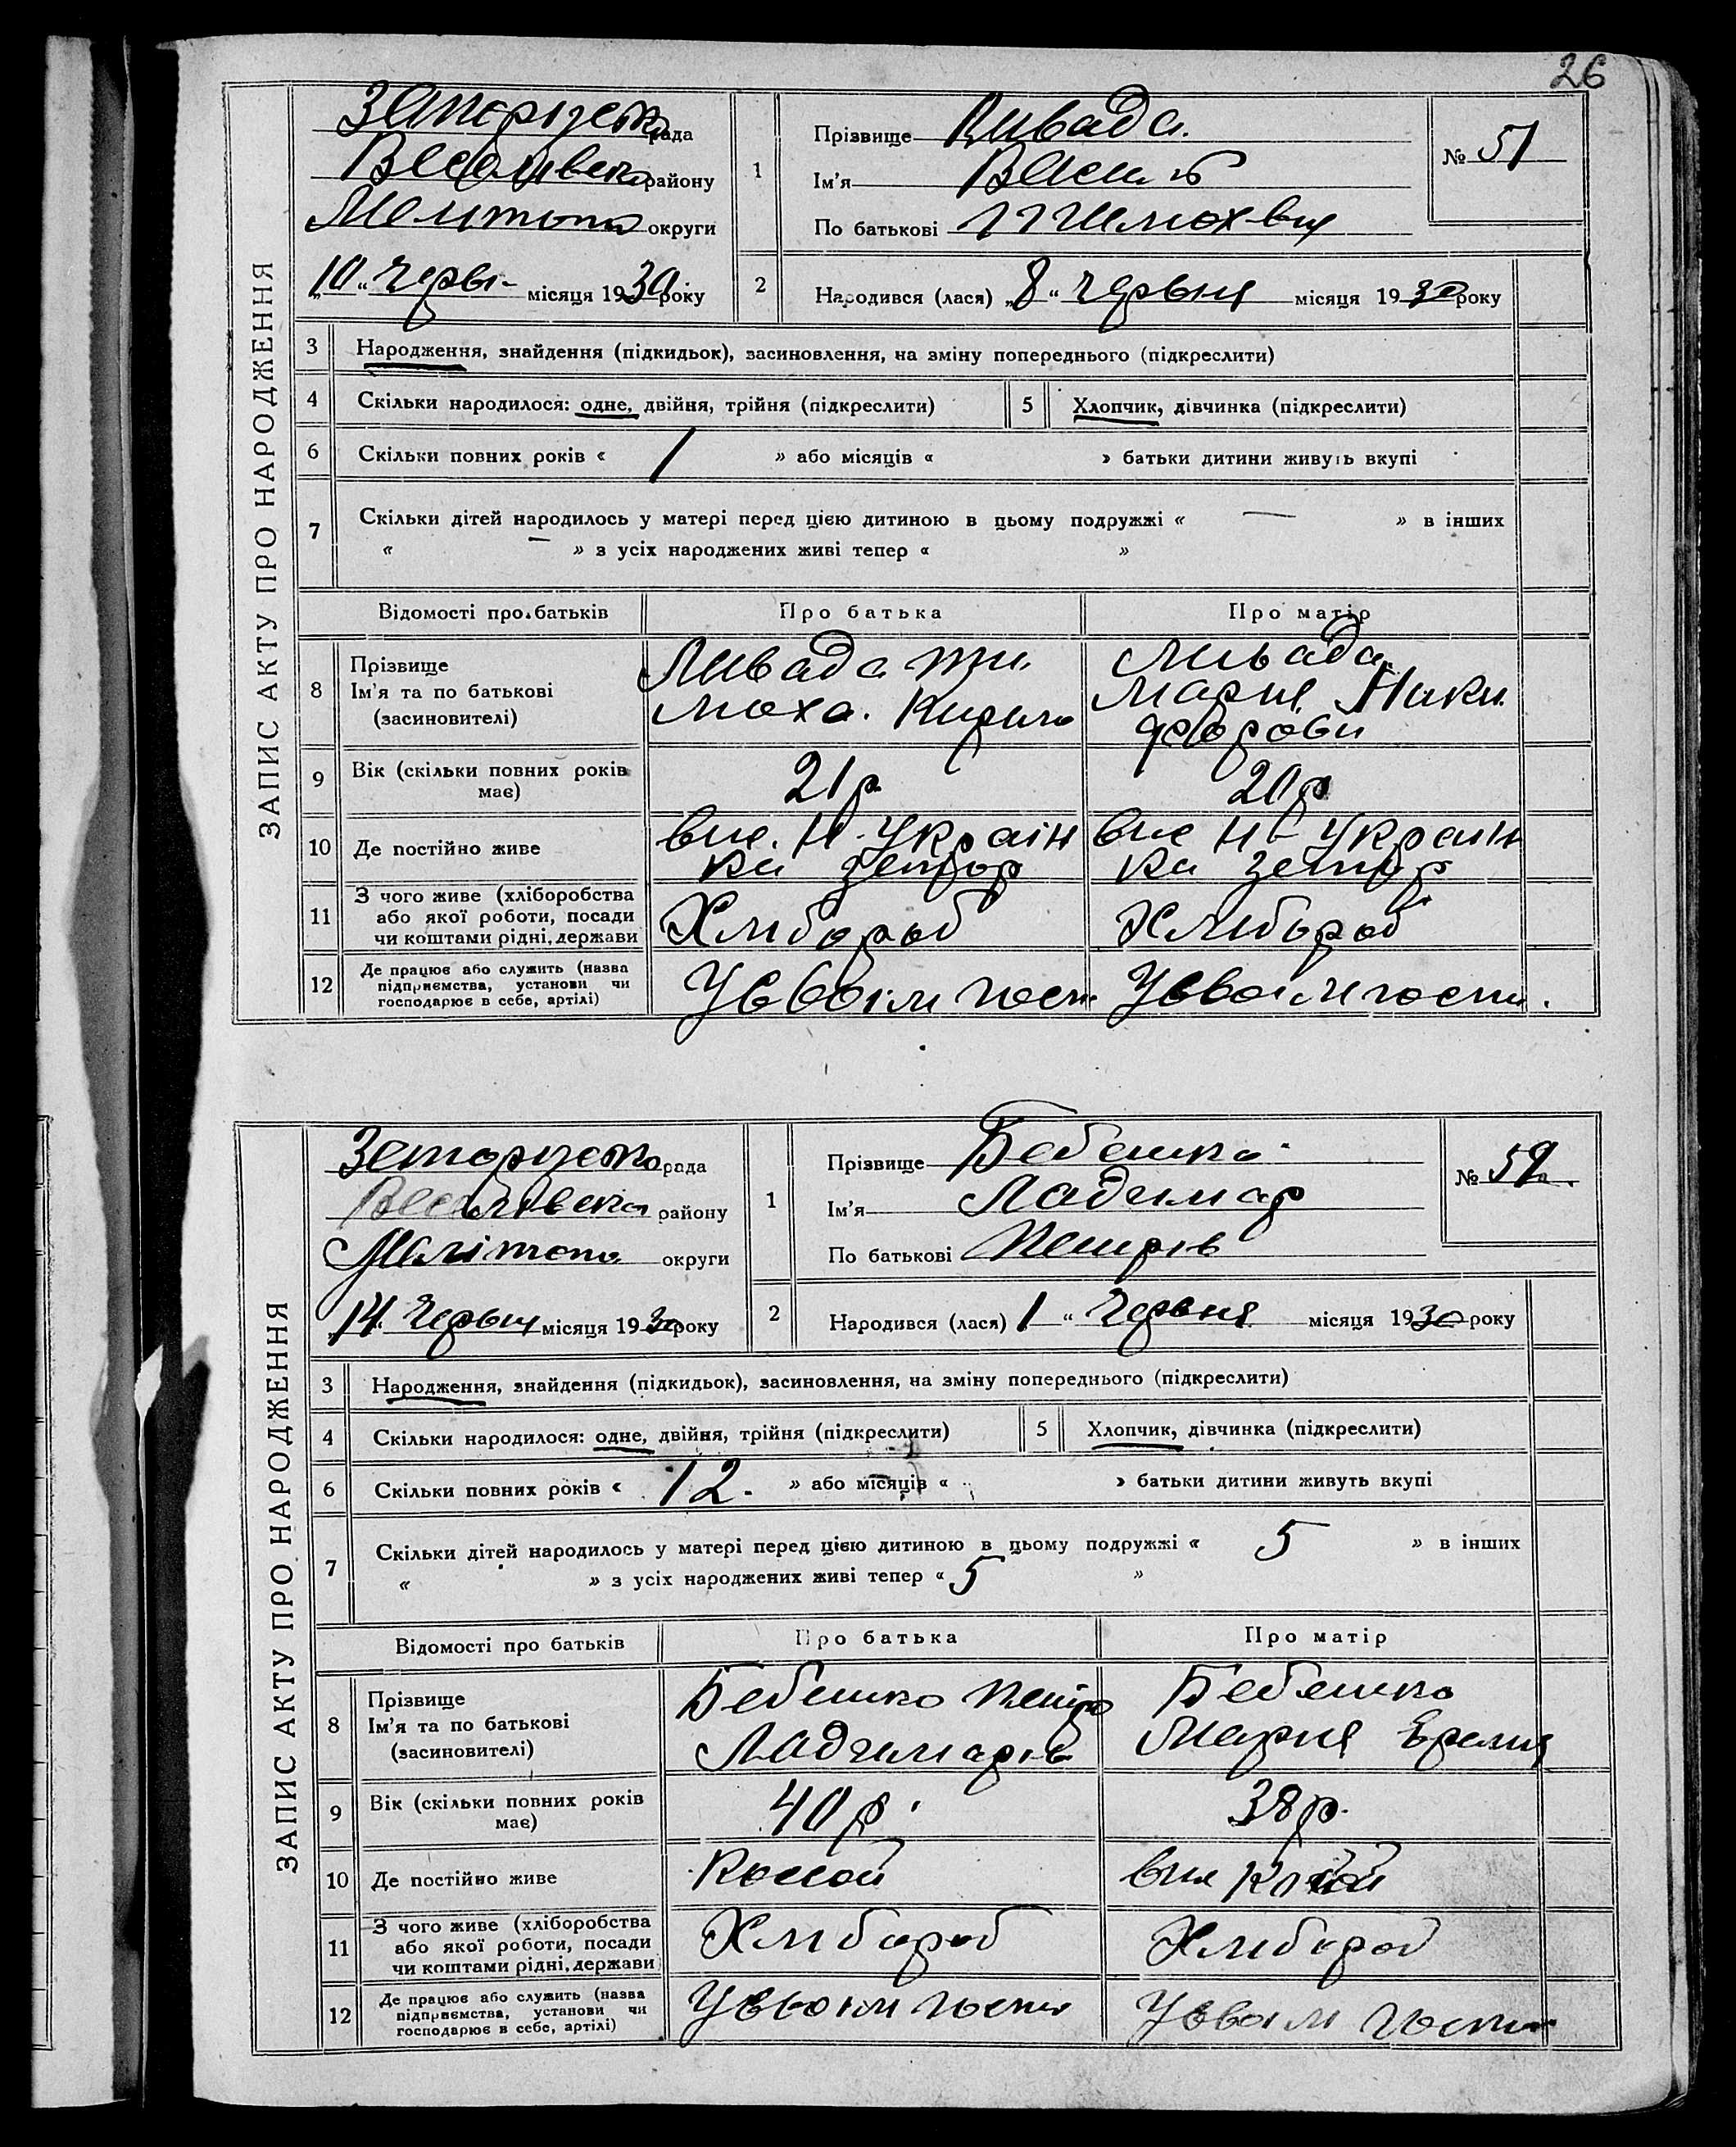 26
ЗАПИС АКТУ ПРО НАРОДЖЕННЯ
рада
району
округи
„10“ Червн- місяця 1930 року
1
Прізвище Ливада.
Ім'я Василь
По батькові
№ 51
2
Народився (лася) „8“ Червня місяця 1930 року
3 Народження, знайдення (підкидьок), засиновлення, на зміну попереднього (підкреслити)
4 Скільки народилося: одне, двійня, трійня (підкреслити)
5 Хлопчик, дівчинка (підкреслити)
6 Скільки повних років « 1 » або місяців « » батьки дитини живуть вкупі
7 Скільки дітей народилось у матері перед цією дитиною в цьому подружжі « — » в інших
« — » з усіх народжених живі тепер « »
Відомості про батьків Про батька Про матір
8 Прізвище
Ім'я та по батькові
(засиновителі)
Ливада Ти
моха. Кирило
Ливада
Мария Ники
форови
9 Вік (скільки повних років
має)
21 р. 20 р
10 Де постійно живе
вис. Н-Україн
ки
вис Н-Україн
ки
11 З чого живе (хліборобства
або якої роботи, посади
чи коштами рідні, держави
Хлибороб Хлибороб
12 Де працює або служить (назва
підприємства, установи чи
господарює в себе, артілі)
Усвоім госп. Усвоім госп.
ЗАПИС АКТУ ПРО НАРОДЖЕННЯ
рада
району
округи
„14“ Червня місяця 1930 року
1
Прізвище Бебешко
Ім'я Ладимар
По батькові Петрів
№ 52.
2
Народився (лася) 1 “ Червня місяця 1930 року
3 Народження, знайдення (підкидьок), засиновлення, на зміну попереднього (підкреслити)
4 Скільки народилося: одне, двійня, трійня (підкреслити)
5 Хлопчик, дівчинка (підкреслити)
6 Скільки повних років « 12. » або місяців « » батьки дитини живуть вкупі
7 Скільки дітей народилось у матері перед цією дитиною в цьому подружжі « 5 » в інших
« » з усіх народжених живі тепер « 5 »
Відомості про батьків Про батька Про матір
8 Прізвище
Ім'я та по батькові
(засиновителі)
Бебешко Петро
Ладимарів
Бебешко
Мария Еремия
9 Вік (скільки повних років
має)
40 р. 38 р.
10 Де постійно живе
вис
11 З чого живе (хліборобства
або якої роботи, посади
чи коштами рідні, держави
Хлибороб Хлибороб
12 Де працює або служить (назва
підприємства, установи чи
господарює в себе, артілі)
Усвоім госп Усвоім госп